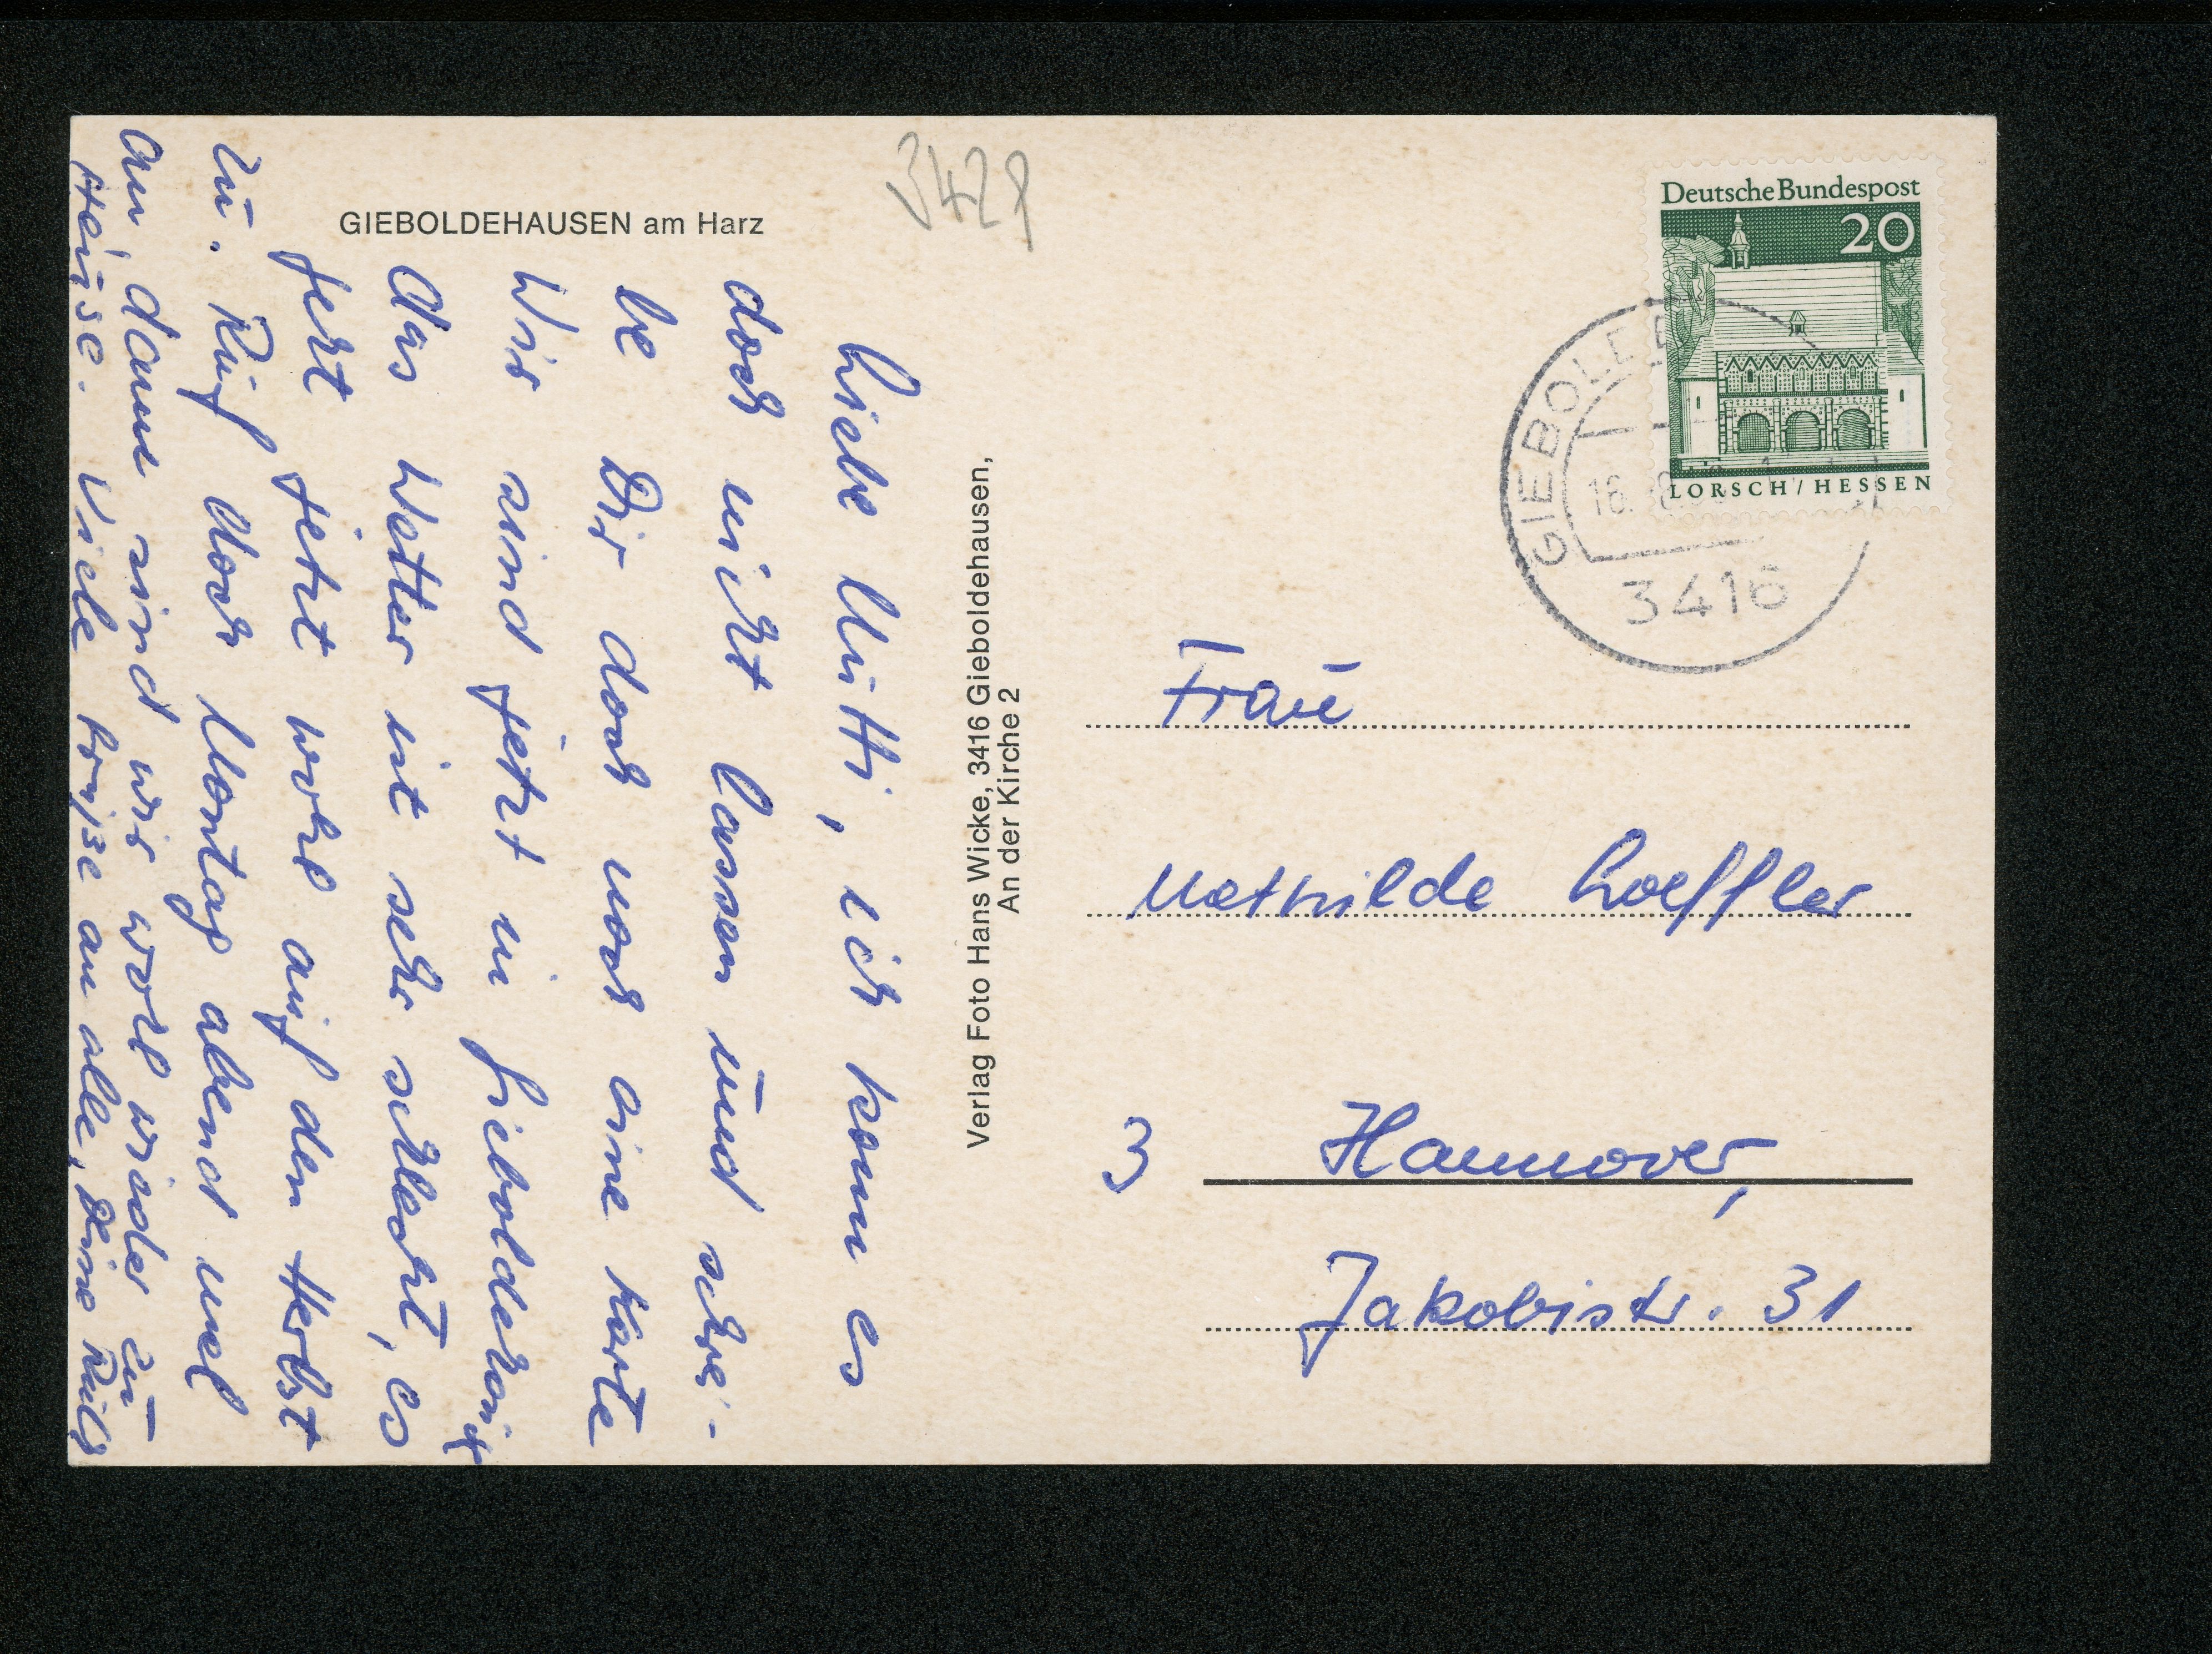 GIEBOLDEHAUSEN am Harz
3429
Liebe Mutti, ich kann es
doch nicht lassen und schrei-
be Dir doch noch eine Karte
Wir sind jetzt in Gieboldehausen
das Wetter ist sehr schlecht, es
geht jetzt wohl auf den Herbst
zu. Ruf doch Montag abend mal
an, dann sind wir wohl wieder zu
Hause. Viele Grüße an alle, Deine
Verlag Foto Hans Wicke, 3416 Gieboldehausen,
An der Kirche 2
Deutsche Bundespost
20
LORSCH/HESSEN
3416
Frau
Mathilde Loeffler
3 Hannover,
Jakobistr. 31